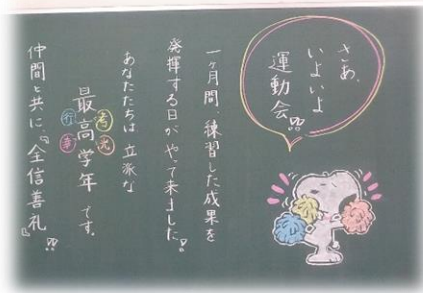 さあ、
いよいよ
運動会!!
一ヶ月間、練習した成果を
発揮する日がやって来ました。
あなたたちは立派な
最高学年です。
仲間と共に、『全信善礼』!!